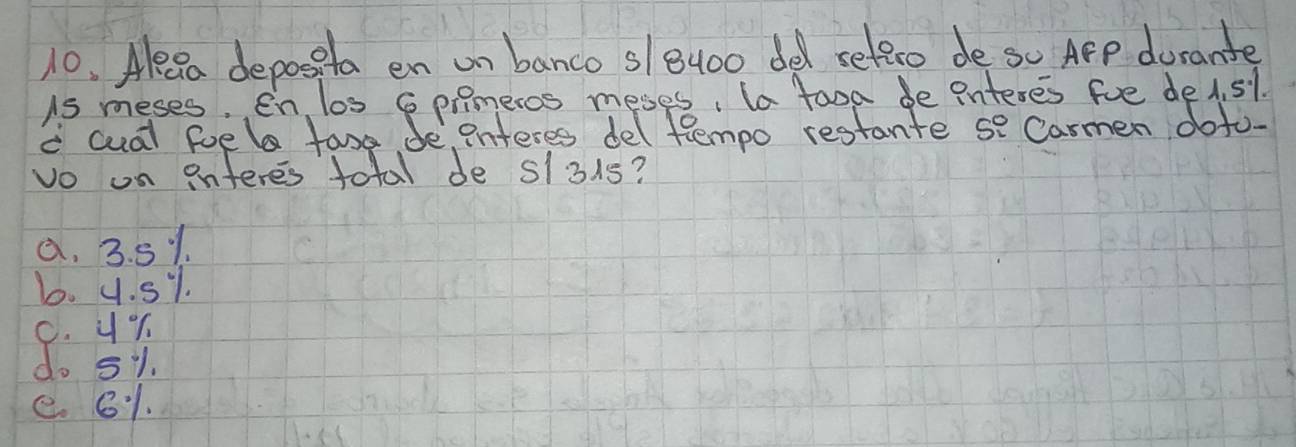 10. Alicia deposita en un banco s/8400 del retiro de su AFP durante
15 meses. En los 6 primeros meses, la tasa de interés fue de 1,5%.
¿ cuál fue la tasa de interes del tiempo restante si Carmen obtu-
vo un interés total de s/315?
a. 3.5%.
b. 4.5%.
c. 4%
d. 5%.
e. 6%.